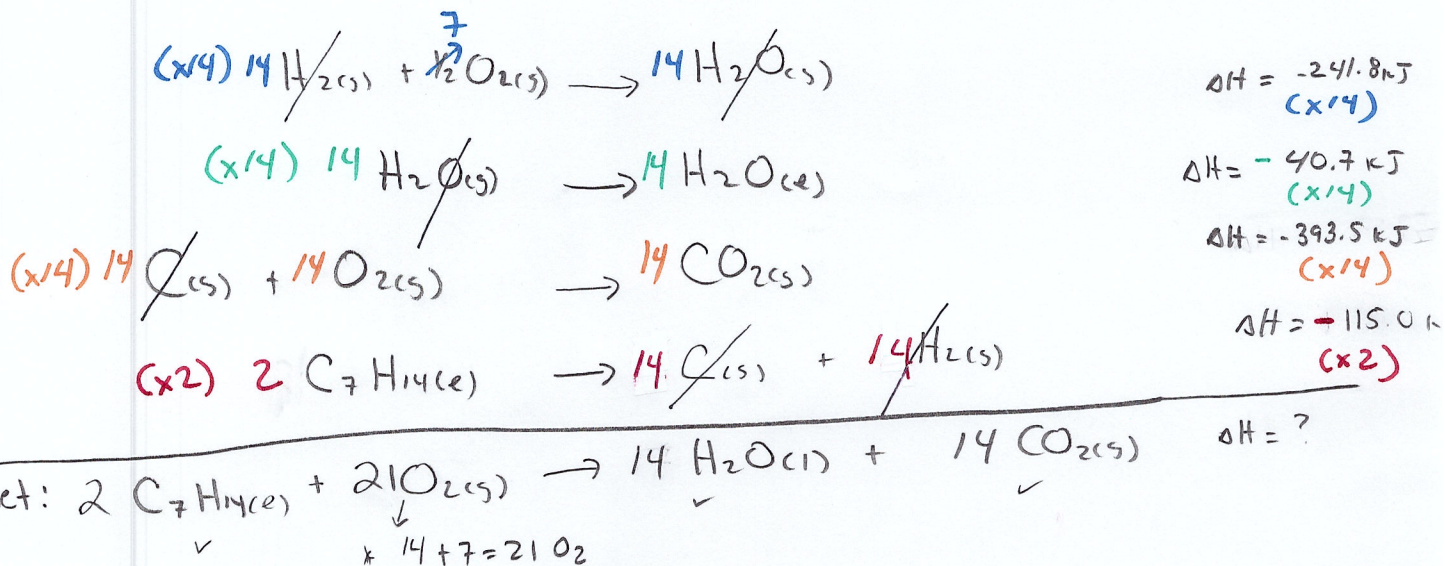 (x14) 14 H2(g) + 1/2 7 O2(g) → 14 H2O(g) ΔH = -241.8kJ (x14)
(x14) 14 H2O(g) → 14 H2O(l) ΔH = - 40.7 kJ (x14)
(x14) 14 C(s) + 14 O2(g) → 14 CO2(g) ΔH = -393.5 kJ (x14)
(x2) 2 C7H14(l) → 14 C(s) + 14 H2(g) ΔH = -115.0 k (x2)
et: 2 C7H14(l) + 21O2(g) → 14 H2O(l) + 14 CO2(g) ΔH = ?
* 14+7=21 O2